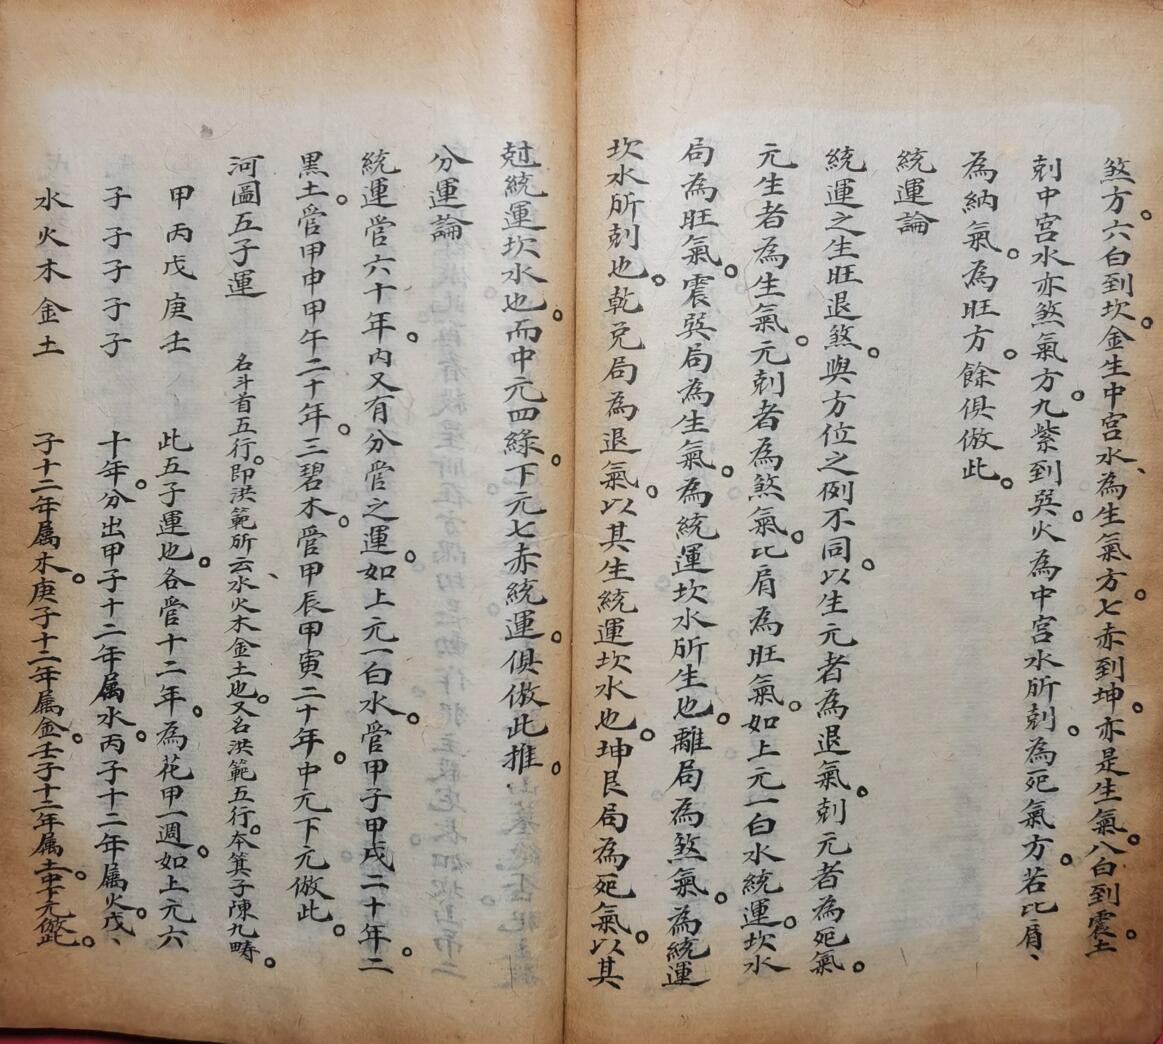 煞方。六白到坎。金生中宮水、為生氣方。七赤到坤。亦是生氣。八白到震。土
剋中宮水亦煞氣方。九紫到巽。火為中宮水所剋。為死氣方。若比肩、
為納氣。為旺方。餘俱倣此。
統運論
統運之生旺退煞。與方位之例不同。以生元者為退氣。剋元者為死氣。
元生者為生氣。元剋者為煞氣。比肩為旺氣。如上元一白水統運。坎水
局為旺氣。震巽局為生氣。為統運坎水所生也。離局為煞氣。為統運
坎水所剋也。乾兌局為退氣。以其生統運坎水也。坤艮局為死氣。以其
尅統運坎水也。而中元四綠。下元七赤統運。俱倣此推。
分運論
統運管六十年。內又有分管之運。如上元一白水。管甲子甲戌二十年。二
黑土。管甲申甲午二十年。三碧木。管甲辰甲寅二十年。中元下元倣此。
河圖五子運 名斗首五行。即洪範所云、水火木金土也。又名洪範五行。本箕子陳九疇。
甲丙戊庚壬 此五子運也。各管十二年。為花甲一週。如上元六
子子子子子 十年。分出甲子十二年屬水。丙子十二年屬火。戊、
水火木金土 子十二年屬木。庚子十二年屬金。壬子十二年屬土。中下元倣此。